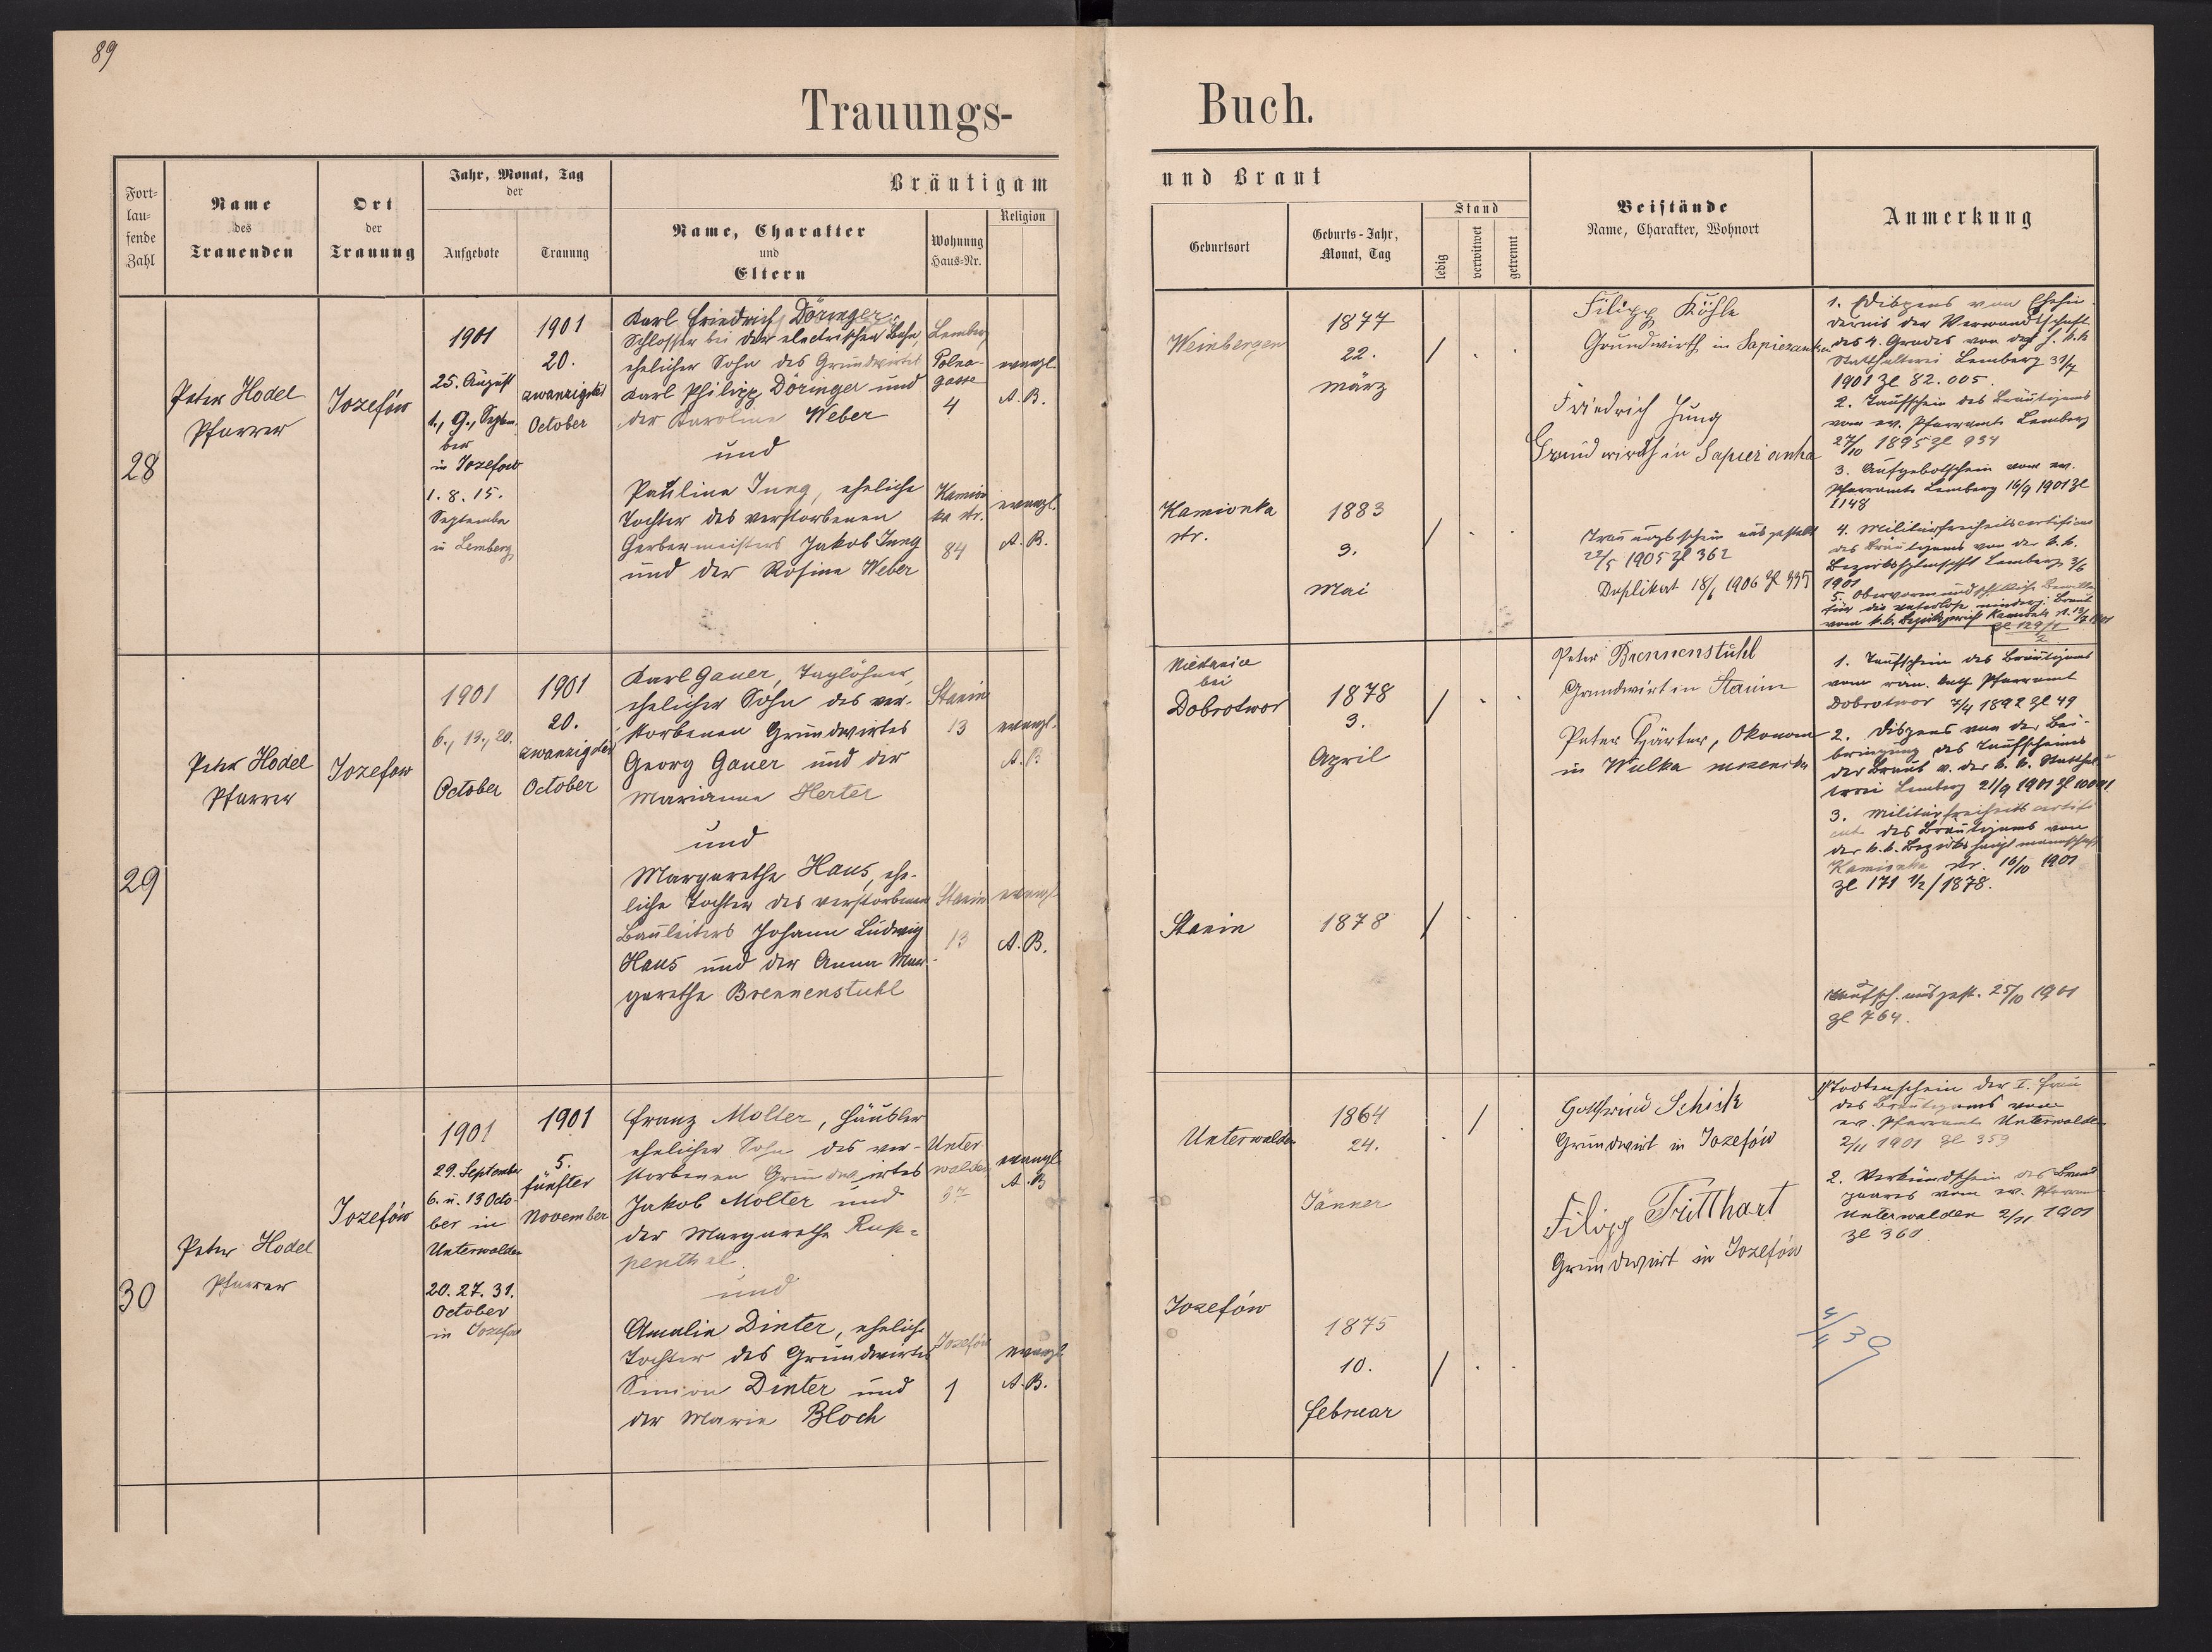 89
Trauungs-
Buch.
Fort-
lau-
fende
Zahl
Name
des
Trauenden
Ort
der
Trauung
Jahr, Monat, Tag
der
Aufgebote
Trauung
Bräutigam
Name, Charakter
und
Eltern
Wohnung
Haus-Nr.
Religion
und Braut
Geburtsort
Geburts-Jahr,
Monat, Tag
Stand
ledig
verwitwet
getrennt
Beistände
Name, Charakter, Wohnort
Anmerkung
28
Peter Hodel
Pfarrer
Jozefów
1901
25. August
1., 9., Septem-
ber
in Jozefow
1. 8. 15.
September
in Lemberg
1901
20.
zwanzigster
October
Karl Friedrich Döringer,
Schlosser bei der electrischen Bahn,
ehelicher Sohn des Grundwirtes
Karl Philipp Döringer und
der Karoline Weber
und
Pauline Jung, eheliche
Tochter des verstorbenen
Gerbermeisters Jakob Jung
und der Rosina Weber
Lemberg
Polna-
gasse
4
evangl.
A. B.
Kamion
ka str.
84
evangl.
A. B.
Weinbergen
1877
22.
März
Kamionka
str.
1883
3.
Mai
Filipp Köhle
Grundwirth in Sapiezanka
Friedrich Jung
Grundwirth in Sapiezanka
Trauungsschein ausgestellt
22/5 1905 Zl 362
Duplikat 18/6 1906 Zl 335
1. Dispens von Ehehin-
dernis der Verwandtschaft
des 4. Grades von der k. k.
Statthalterei Lemberg 31/7
1901 Zl 82.005.
2. Taufschein des Bräutigams
vom ev. Pfarramte Lemberg
27/10 1895 Zl 934
3. Aufgebotschein vom ev.
Pfarramte Lemberg 16/9 1901 Zl
1148
4. Militärfreiheitscertificat
des Bräutigams von der k. k.
Bezirkshptmschft Lemberg 3/6
1901
5. Obervormundschftliche Bewillg
für die vaterlose minderj. Braut
vom k. k. Bezirksgericht Kamionka
29
Peter Hodel
Pfarrer
Jozefow
1901
6., 13., 20.
October
1901
20.
zwanzigster
October
Karl Gauer, Taglöhner,
ehelicher Sohn des ver-
storbenen Grundwirtes
Georg Gauer und der
Marianna Herter
und
Margarethe Haus, ehe-
liche Tochter des verstorbenen
Bauleiters Johann Ludwig
Haus und der Anna Mar-
garethe Brennenstuhl
Stanin
13
evangl.
A. B
Stanin
13
evangl
A. B.
bei
Dobrotwor
1878
3.
April
Stanin
1878
Peter Brennenstuhl
Grundwirt in Stanin
Peter Härter, Ökonom
in Wulka
1. Taufschein des Bräutigams
vom röm. kath Pfarramt
Dobrotwor 7/4 1892 Zl 49
2. Dispens von der Bei-
bringung des Taufscheines
der Braut v. der k. k. Statthal-
terei Lemberg 21/9 1901
3. Militärfreiheits certifi
cat des Bräutigams von
der k. k. Bezirkshauptmannschaft
Kamionka str. 16/10 1901
Zl 171 1/2/1878.
Taufsch. ausgest. 25/10 1901
Zl 764.
30
Peter Hodel
Pfarrer
Jozefów
1901
29. September
6. u. 13 Octo-
ber in
Unterwalden
20. 27. 31.
October
in Jozefow
1901
5.
fünfter
November
Franz Molter, Häusler
ehelicher Sohn des ver-
storbenen Grundwirtes
Jakob Molter und
der Margarethe Rup-
penthal
und
Amalia Dinter, eheliche
Tochter des Grundwirtes
Simion Dinter und
der Maria Bloch
Unter
walden
37
evangl
A. B
Jozefów
1
evangl
A. B.
Unterwalden
1864
24.
Jänner
Jozefów
1875
10.
Februar
Gottfried Schick
Grundwirt in Jozefów
Filipp Tritthart
Grundwirt in Jozefów
1. Todtenschein der I. Frau
des Bräutigams vom
ev. Pfarramt Unterwalden
2/11 1901 Zl 359
2. Verkündschein des Braut
paares vom ev. Pfarramt
Unterwalden 2/11 1901
Zl 360.